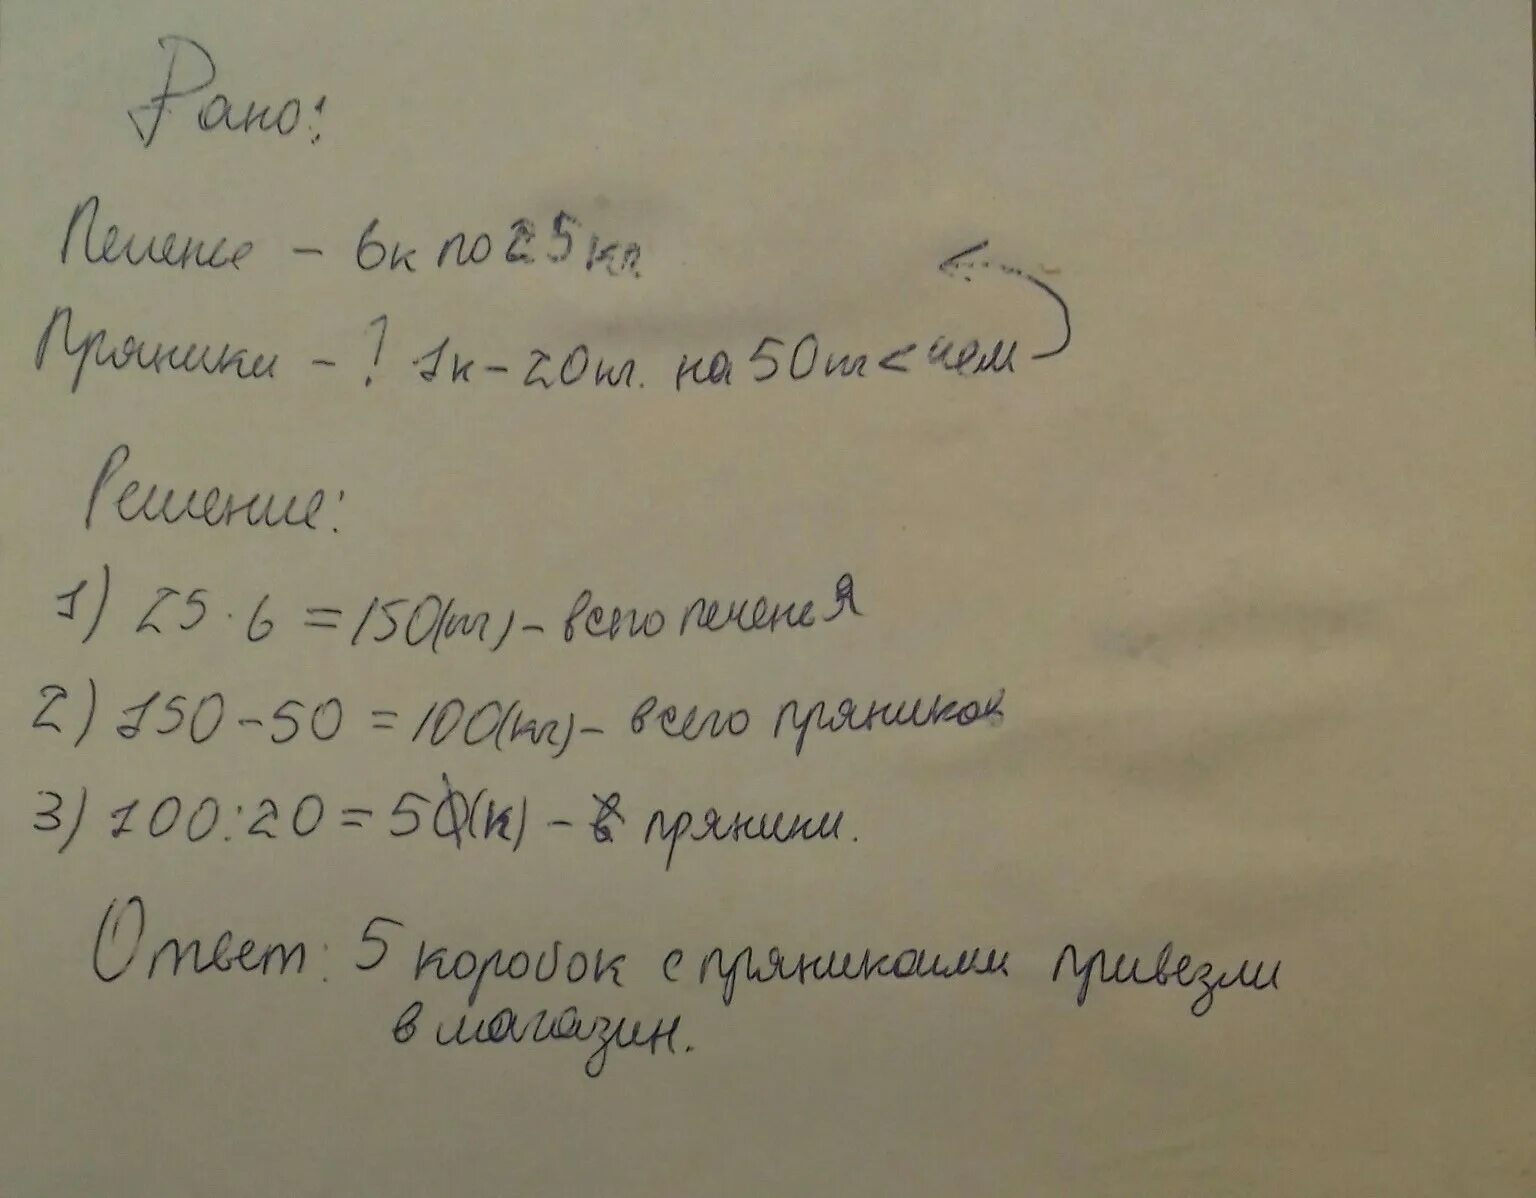 Дано:
Печенье - 6к по 25кг.
Пряники - ? 1к - 20кг. на 50кг < чем
Решение:
1) 25 · 6 = 150(кг) - всего печенья
2) 150 - 50 = 100(кг) - всего пряников
3) 100 : 20 = 5(к) - пряники.
Ответ: 5 коробок с пряниками привезли
в магазин.